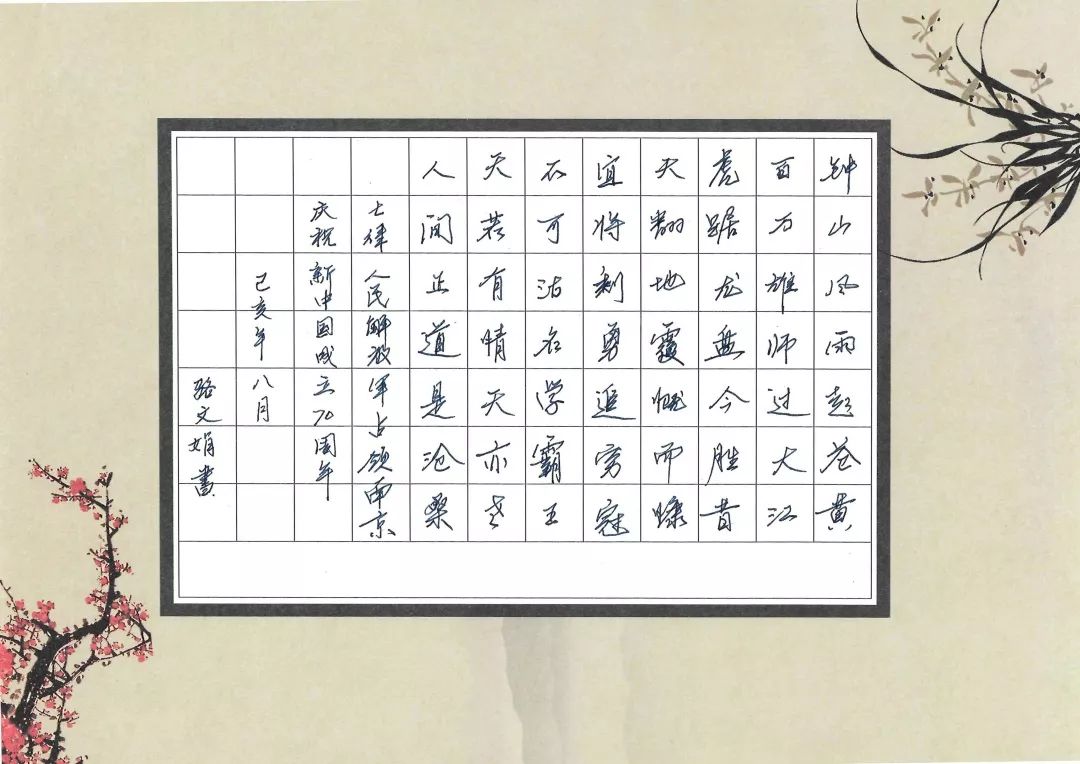 钟山风雨起苍黄
百万雄师过大江
虎踞龙盘今胜昔
天翻地覆慨而慷
宜将剩勇追穷寇
不可沽名学霸王
天若有情天亦老
人间正道是沧桑
七律 人民解放军占领南京
庆祝新中国成立70周年
己亥年八月
骆文娟書